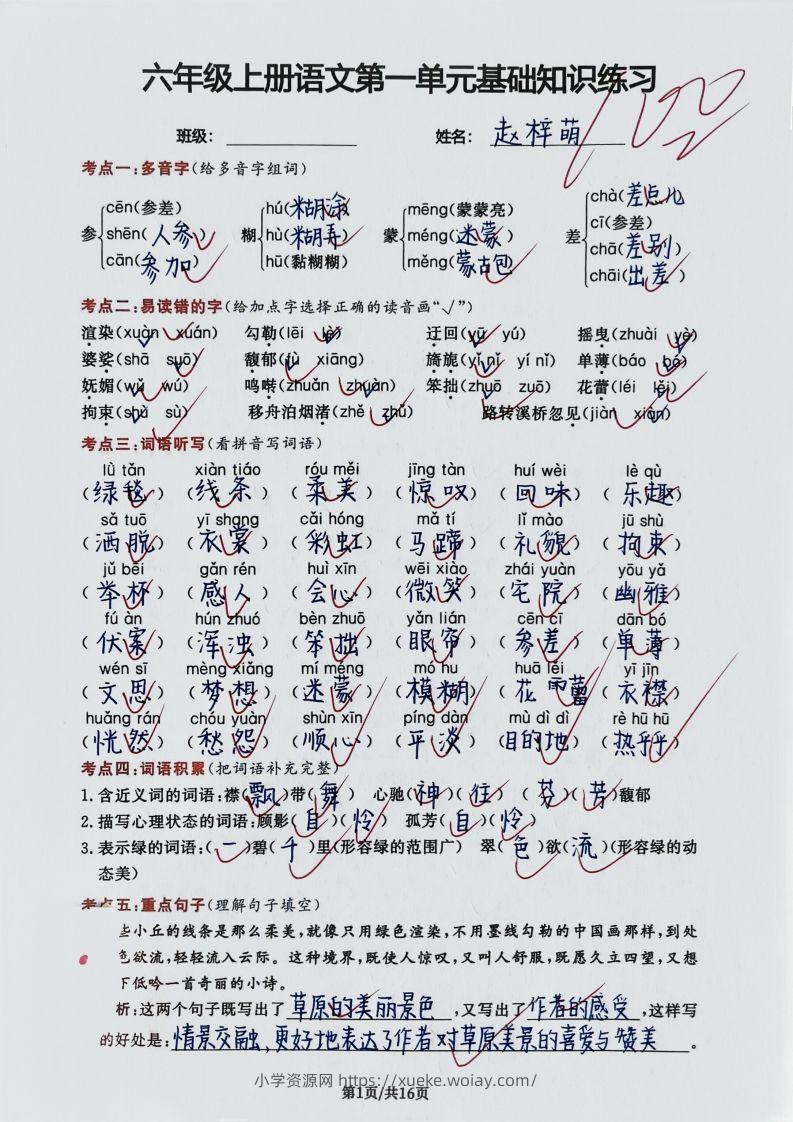 六年级上册语文第一单元基础知识练习
100
班级: 姓名: 赵梓萌
考点一:多音字(给多音字组词)
参 cēn(参差) shēn(人参) cān(参加)
糊 hú(糊涂) hù(糊弄) hū(黏糊糊)
蒙 mēng(蒙蒙亮) méng(迷蒙) měng(蒙古包)
差 chà(差点儿) cī(参差) chā(差别) chāi(出差)
考点二:易读错的字(给加点字选择正确的读音画“√”)
渲染(xuàn xuán) 勾勒(lēi lè) 迂回(yū yú) 摇曳(zhuài yè)
婆娑(shā suō) 馥郁(fù xiāng) 旖旎(yǐ nǐ yí nǐ) 单薄(báo bó)
妩媚(wǔ wú) 鸣啭(zhuǎn zhuàn) 笨拙(zhuō zuō) 花蕾(léi lěi)
拘束(shù sù) 移舟泊烟渚(zhě zhǔ) 路转溪桥忽见(jiàn xiàn)
考点三:词语听写(看拼音写词语)
lǜ tǎn xiàn tiáo róu měi jīng tàn huí wèi lè qù
(绿毯) (线条) (柔美) (惊叹) (回味) (乐趣)
sǎ tuō yī shang cǎi hóng mǎ tí lǐ mào jū shù
(洒脱) (衣裳) (彩虹) (马蹄) (礼貌) (拘束)
jǔ bēi gǎn rén huì xīn wēi xiào zhái yuàn yōu yǎ
(举杯) (感人) (会心) (微笑) (宅院) (幽雅)
fú àn hún zhuó bèn zhuō yǎn lián cēn cī dān bó
(伏案) (浑浊) (笨拙) (眼帘) (参差) (单薄)
wén sī mèng xiǎng mí méng mó hu huā lěi yī jīn
(文思) (梦想) (迷蒙) (模糊) (花蕾) (衣襟)
huǎng rán chóu yuàn shùn xīn píng dàn mù dì dì rè hū hū
(恍然) (愁怨) (顺心) (平淡) (目的地) (热乎乎)
考点四:词语积累(把词语补充完整)
1. 含近义词的词语:襟(飘)带(舞) 心驰(神)(往) (芬)(芳)馥郁
2. 描写心理状态的词语:顾影(自)(怜) 孤芳(自)(怜)
3. 表示绿的词语:(一)碧(千)里(形容绿的范围广) 翠(色)欲(流)(形容绿的动
态美)
考点五:重点句子(理解句子填空)
些小丘的线条是那么柔美,就像只用绿色渲染,不用墨线勾勒的中国画那样,到处
色欲流,轻轻流入云际。这种境界,既使人惊叹,又叫人舒服,既愿久立四望,又想
下低吟一首奇丽的小诗。
析:这两个句子既写出了草原的美丽景色,又写出了作者的感受,这样写
的好处是:情景交融,更好地表达了作者对草原美景的喜爱与赞美。
小学资源网 https://xueke.woiay.com/
第1页/共16页